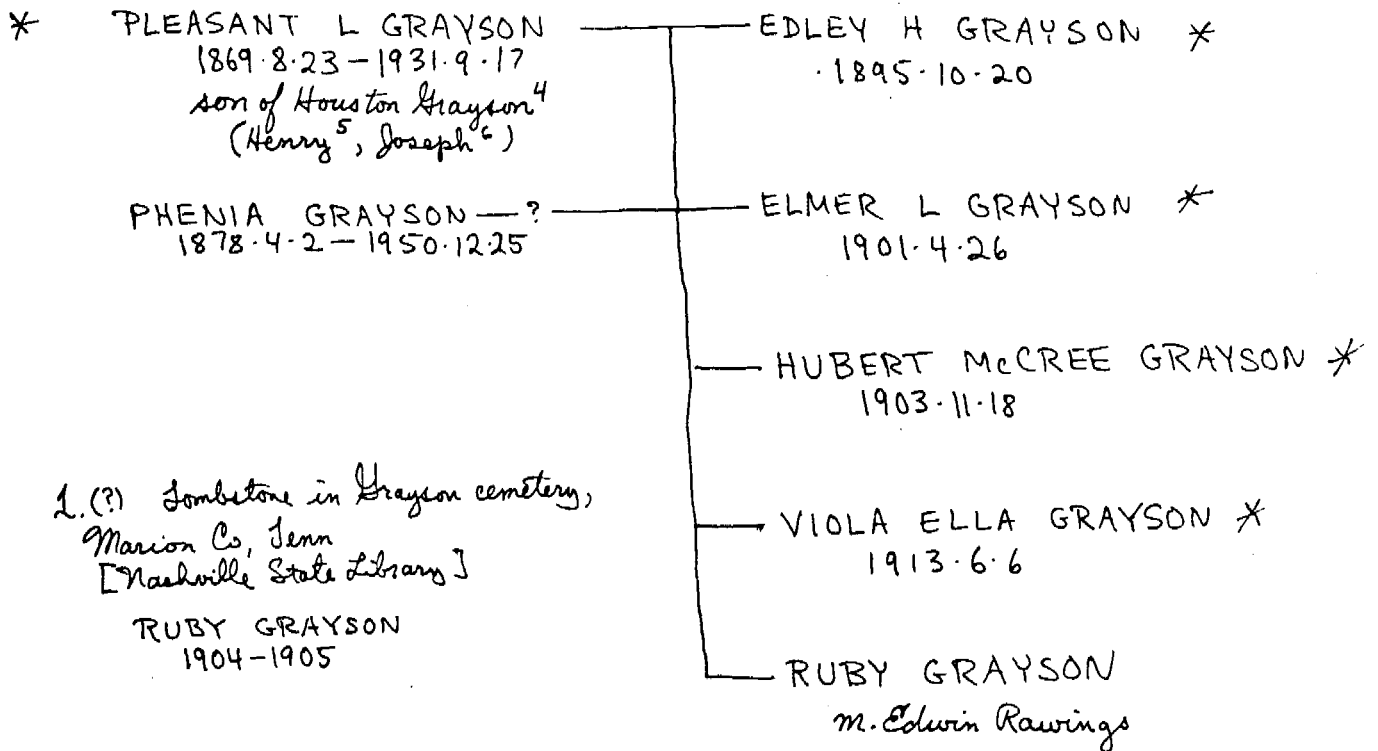 * PLEASANT L GRAYSON
1869·8·23 – 1931·9·17
son of Houston Grayson⁴
(Henry⁵, Joseph⁶)
PHENIA GRAYSON — ?
1878·4·2 – 1950·12·25
1.(?) Tombstone in Grayson cemetery,
Marion Co, Tenn
[Nashville State Library]
RUBY GRAYSON
1904–1905
EDLEY H GRAYSON *
·1895·10·20
ELMER L GRAYSON *
1901·4·26
HUBERT McCREE GRAYSON *
1903·11·18
VIOLA ELLA GRAYSON *
1913·6·6
RUBY GRAYSON
m. Edwin Rawings